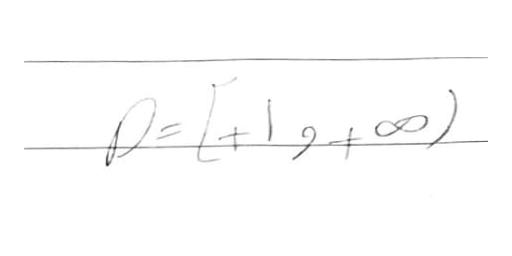 D=[+1,+∞)